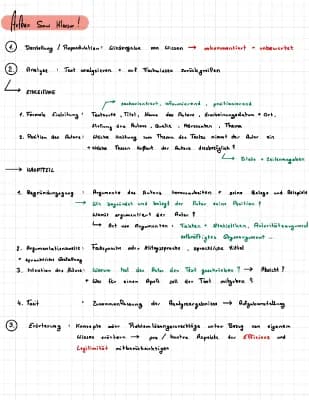 Aufbau Sowi Klausur!
① Darstellung / Reproduktion: Wiedergabe von Wissen → unkommentiert + unbewertet
② Analyse : Text analysieren + auf Fachwissen zurückgreifen
EINLEITUNG
sachorientiert, informierend, positionierend
1. Formale Einleitung : Textsorte, Titel, Name des Autors, Erscheinungsdatum + Ort,
Meinung des Autors, Quelle, Adressaten, Thema
2. Position des Autors: Welche Haltung zum Thema des Textes nimmt der Autor ein
+ Welche Thesen äußert der Autor diesbezüglich?
Zitate + Zeilenangaben
HAUPTTEIL
1. Begründungsgang : Argumente des Autors herausarbeiten + seine Belege und Beispiele
Wie begründet und belegt der Autor seine Position?
Womit argumentiert der Autor?
Art von Argumenten : Fakten + Statistiken, Autoritätsargument
2. Argumentationsweise : Fachsprache oder Alltagssprache, sprachliche Mittel
+ sprachliche Gestaltung
3. Intention des Autors: Warum hat der Autor den Text geschrieben? → Absicht?
+ Was für einen Appell soll der Text mitgeben?
4. Fazit • Zusammenfassung der Analyseergebnisse → Aufgabenstellung
③ Erörterung : Konzepte oder Problemlösungsvorschläge unter Bezug von eigenem
Wissen erörtern → pro / kontra Aspekte der Effizienz und
Legitimität mitberücksichtigen